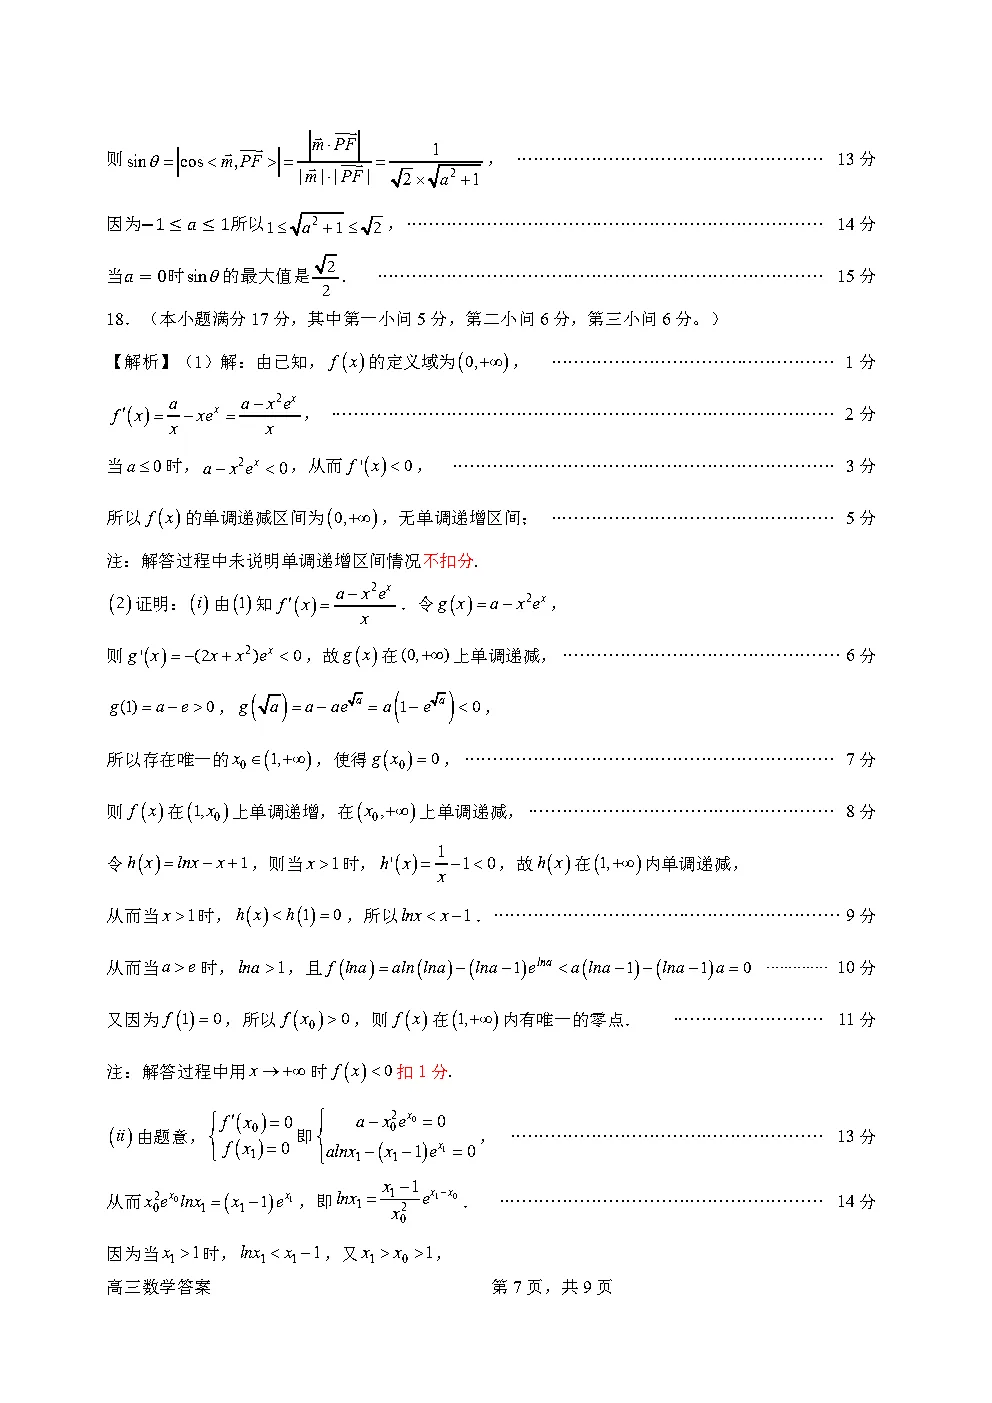 则 sinθ = |cos < m⃗, PF⃗ >| = |m⃗·PF⃗| / (|m⃗|·|PF⃗|) = 1 / (√2 × √(a²+1)), ………… 13 分
因为−1 ≤ a ≤ 1所以1 ≤ √(a²+1) ≤ √2, ………… 14 分
当a = 0时 sinθ 的最大值是 √2/2. ………… 15 分
18. (本小题满分 17 分，其中第一小问 5 分，第二小问 6 分，第三小问 6 分。)
【解析】(1) 解：由已知，f(x) 的定义域为 (0,+∞)， ………… 1 分
f′(x) = a/x − xeˣ = (a − x²eˣ)/x， ………… 2 分
当 a ≤ 0 时，a − x²eˣ < 0，从而 f'(x) < 0， ………… 3 分
所以 f(x) 的单调递减区间为 (0,+∞)，无单调递增区间; ………… 5 分
注：解答过程中未说明单调递增区间情况不扣分.
(2) 证明：(i) 由 (1) 知 f′(x) = (a − x²eˣ)/x．令 g(x) = a − x²eˣ，
则 g'(x) = −(2x + x²)eˣ < 0，故 g(x) 在 (0,+∞) 上单调递减， ………… 6 分
g(1) = a − e > 0，g(√a) = a − ae^√a = a(1 − e^√a) < 0，
所以存在唯一的 x₀ ∈ (1,+∞)，使得 g(x₀) = 0， ………… 7 分
则 f(x) 在 (1,x₀) 上单调递增，在 (x₀,+∞) 上单调递减， ………… 8 分
令 h(x) = lnx − x + 1，则当 x > 1 时，h'(x) = 1/x − 1 < 0，故 h(x) 在 (1,+∞) 内单调递减，
从而当 x > 1 时，h(x) < h(1) = 0，所以 lnx < x − 1． ………… 9 分
从而当 a > e 时，lna > 1，且 f(lna) = aln(lna) − (lna − 1)e^lna < a(lna − 1) − (lna − 1)a = 0 ………… 10 分
又因为 f(1) = 0，所以 f(x₀) > 0，则 f(x) 在 (1,+∞) 内有唯一的零点. ………… 11 分
注：解答过程中用 x → +∞ 时 f(x) < 0 扣 1 分.
(ii) 由题意，{f′(x₀) = 0, f(x₁) = 0 即 {a − x₀²e^x₀ = 0, alnx₁ − (x₁ − 1)e^x₁ = 0， ………… 13 分
从而 x₀²e^x₀ lnx₁ = (x₁ − 1)e^x₁，即 lnx₁ = (x₁ − 1)/x₀² e^(x₁−x₀)． ………… 14 分
因为当 x₁ > 1 时，lnx₁ < x₁ − 1，又 x₁ > x₀ > 1，
高三数学答案 第 7 页，共 9 页